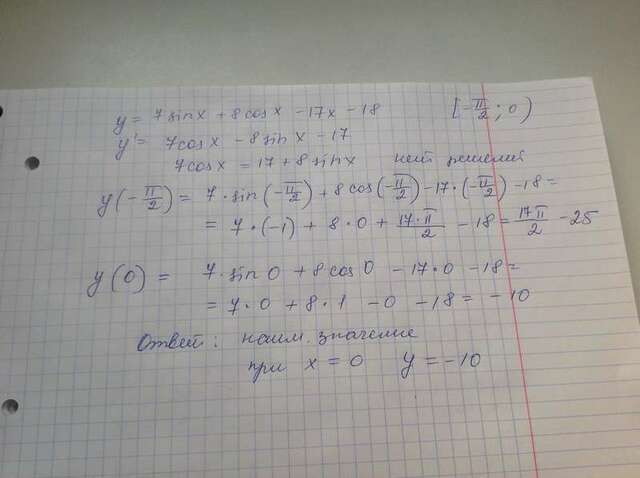 y = 7 sin x + 8 cos x - 17x - 18 [-π/2; 0)
y' = 7 cos x - 8 sin x - 17
7 cos x = 17 + 8 sin x нет решений
y(-π/2) = 7 · sin(-π/2) + 8 cos(-π/2) - 17 · (-π/2) - 18 =
= 7 · (-1) + 8 · 0 + 17·π/2 - 18 = 17π/2 - 25
y(0) = 7 · sin 0 + 8 cos 0 - 17 · 0 - 18 =
= 7 · 0 + 8 · 1 - 0 - 18 = -10
Ответ: наим. значение
при x = 0 y = -10